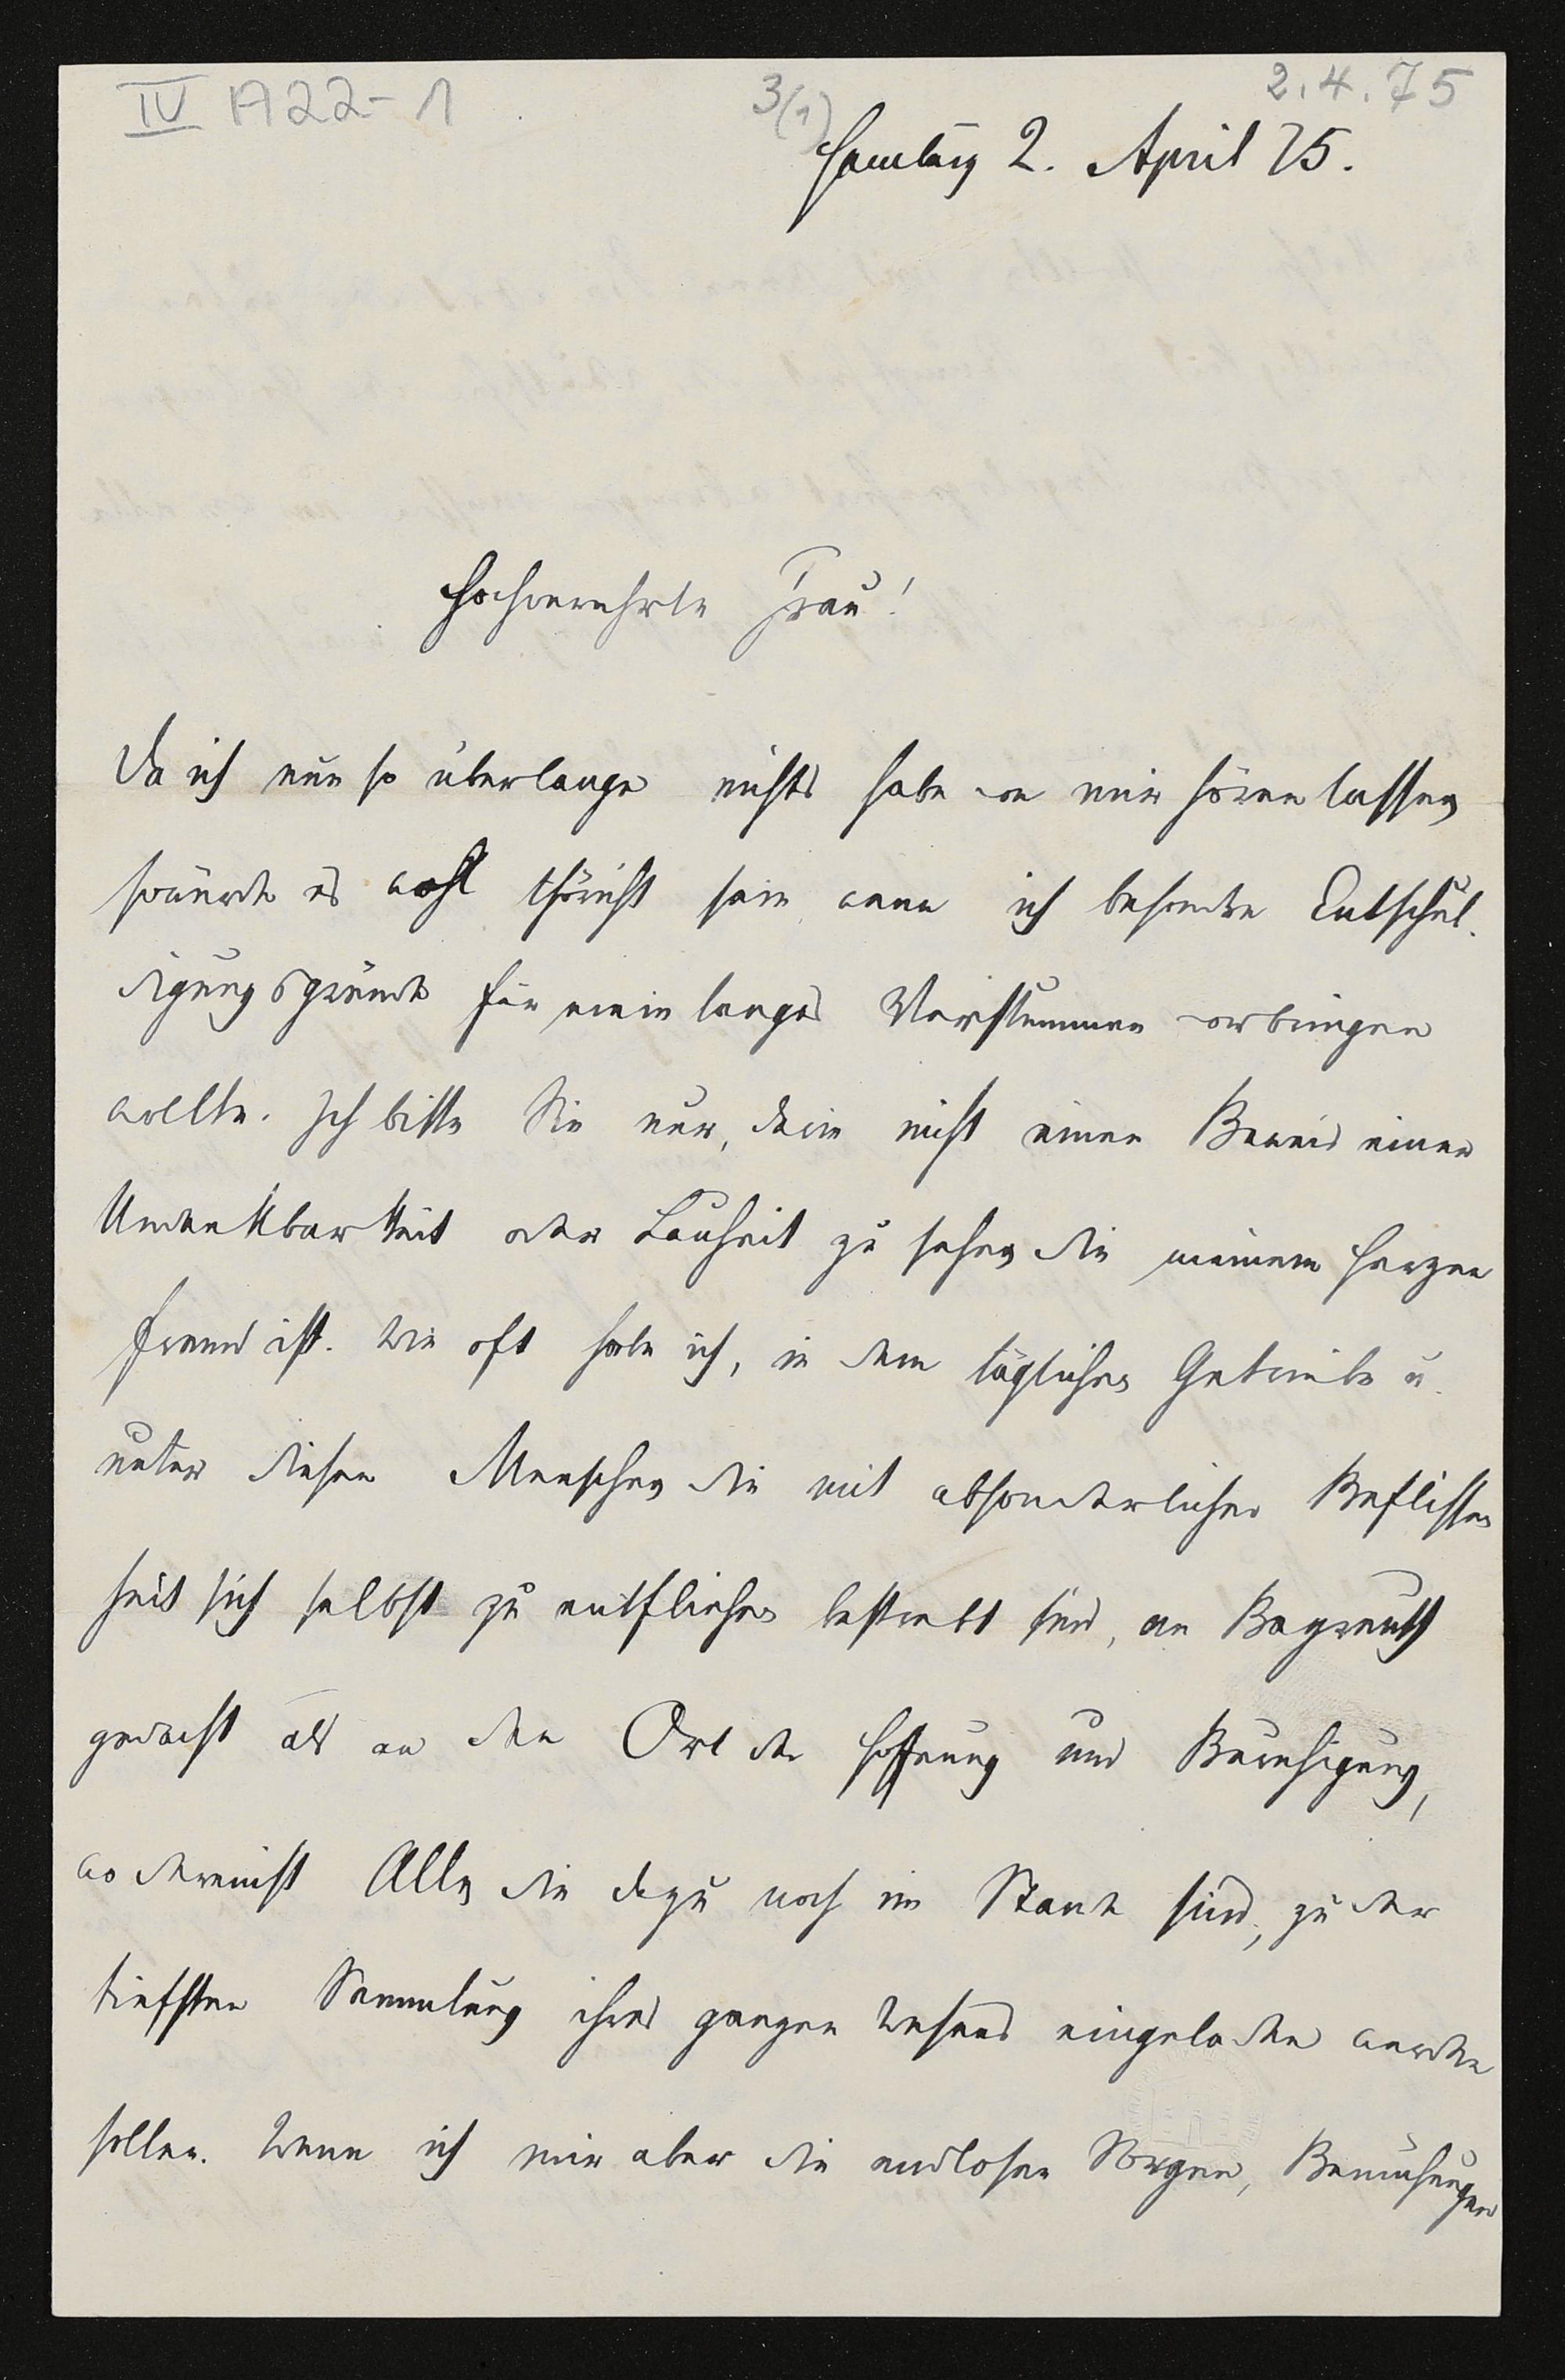 IV A22-1
3(1)
2.4.75
Hamburg 2. April 75.
Hochverehrte Frau!
Da ich nun so überlange nichts habe von mir hören lassen
so würde es wohl thöricht sein wenn ich besondre Entschul-
digungsgründe für mein langes Verstummen vorbringen
wollte. Ich bitte Sie nur, darin nicht einen Beweis einer
Undankbarkeit oder Lauheit zu sehen die meinem Herzen
fremd ist. Wie oft habe ich, in dem täglichen Getriebe u.
unter diesen Menschen die mit absonderlicher Beflissen
heit sich selbst zu entfliehen bestrebt sind, an Bayreuth
gedacht als an den Ort der Hoffnung und Beruhigung,
wo dereinst Alle, die dazu noch im Stande sind, zu der
tiefsten Sammlung ihres ganzen Wesens eingeladen werden
sollen. Wenn ich mir aber die endlosen Sorgen, Bemühungen